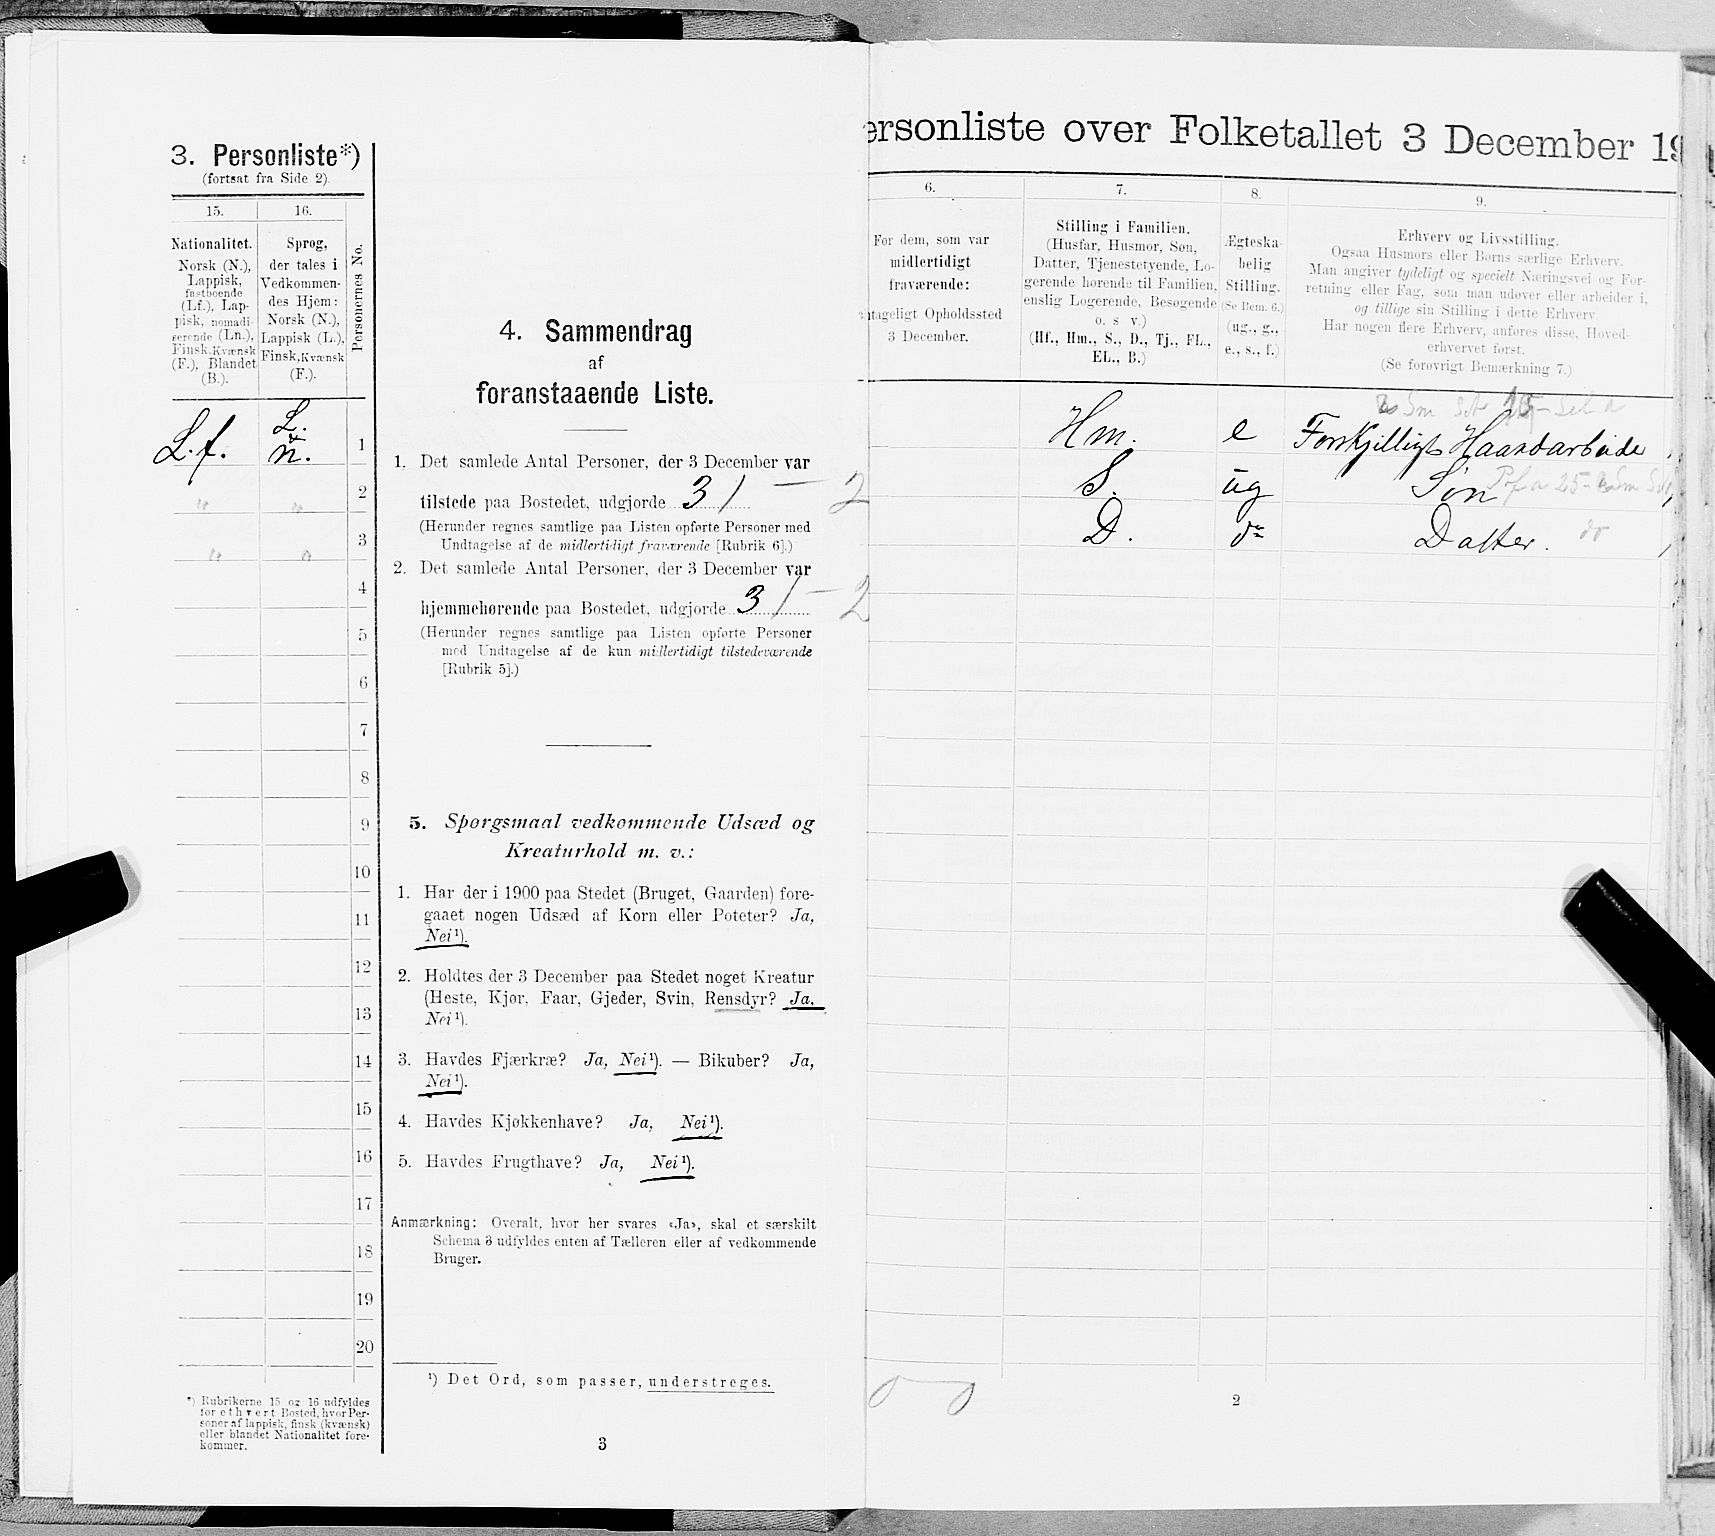 3. Personliste*)
(fortsat fra Side 2).
15.
16.
Nationalitet.
Norsk (N.),
Lappisk,
fastboende
(Lf.), Lap-
pisk, nomadi-
serende (Ln.),
Finsk, Kvænsk
(F.), Blandet
(B.).
Sprog,
der tales i
Vedkommen-
des Hjem:
Norsk (N.),
Lappisk (L.),
Finsk, Kvænsk
(F.).
Personernes No.
L.f.
L.
n.
1
" " 2
" " 3
4
5
6
7
8
9
10
11
12
13
14
15
16
17
18
19
20
*) Rubrikerne 15 og 16 udfyldes
for ethvert Bosted, hvor Per-
soner af lappisk, finsk (kvænsk)
eller blandet Nationalitet fore-
kommer.
4. Sammendrag
af
foranstaaende Liste.
1. Det samlede Antal Personer, der 3 December var
tilstede paa Bostedet, udgjorde 3 1 – 2
(Herunder regnes samtlige paa Listen opførte Personer med
Undtagelse af de midlertidigt fraværende [Rubrik 6].)
2. Det samlede Antal Personer, der 3 December var
hjemmehørende paa Bostedet, udgjorde 3 1 – 2
(Herunder regnes samtlige paa Listen opførte Personer
med Undtagelse af de kun midlertidigt tilstedeværende
[Rubrik 5].)
5. Spørgsmaal vedkommende Udsæd og
Kreaturhold m. v.:
1. Har der i 1900 paa Stedet (Bruget, Gaarden) fore-
gaaet nogen Udsæd af Korn eller Poteter? Ja,
Nei¹).
2. Holdtes der 3 December paa Stedet noget Kreatur
(Heste, Kjør, Faar, Gjeder, Svin, Rensdyr? Ja,
Nei¹).
3. Havdes Fjærkræ? Ja, Nei¹). — Bikuber? Ja,
Nei¹).
4. Havdes Kjøkkenhave? Ja, Nei¹).
5. Havdes Frugthave? Ja, Nei¹).
Anmærkning: Overalt, hvor her svares «Ja», skal et særskilt
Schema 3 udfyldes enten af Tælleren eller af vedkommende
Bruger.
¹) Det Ord, som passer, understreges.
3
ersonliste over Folketallet 3 December 19
6.
7.
8.
9.
For dem, som var
midlertidigt
fraværende:
ntageligt Opholdssted
3 December.
Stilling i Familien.
(Husfar, Husmor, Søn,
Datter, Tjenestetyende, Lo-
gerende hørende til Familien,
enslig Logerende, Besøgende
o. s. v.)
(Hf., Hm., S., D., Tj., FL.,
EL., B.)
Ægteska-
belig
Stilling.
(Se Bem. 6.)
(ug., g.,
e., s., f.)
Erhverv og Livsstilling.
Ogsaa Husmors eller Børns særlige Erhverv.
Man angiver tydeligt og specielt Næringsvei og For-
retning eller Fag, som man udøver eller arbeider i,
og tillige sin Stilling i dette Erhverv.
Har nogen flere Erhverv, anføres disse, Hoved-
erhvervet først.
(Se forøvrigt Bemærkning 7.)
Hm. e Forskjelligt Haandarbeide
S. ug Søn
D. do Datter. do
2